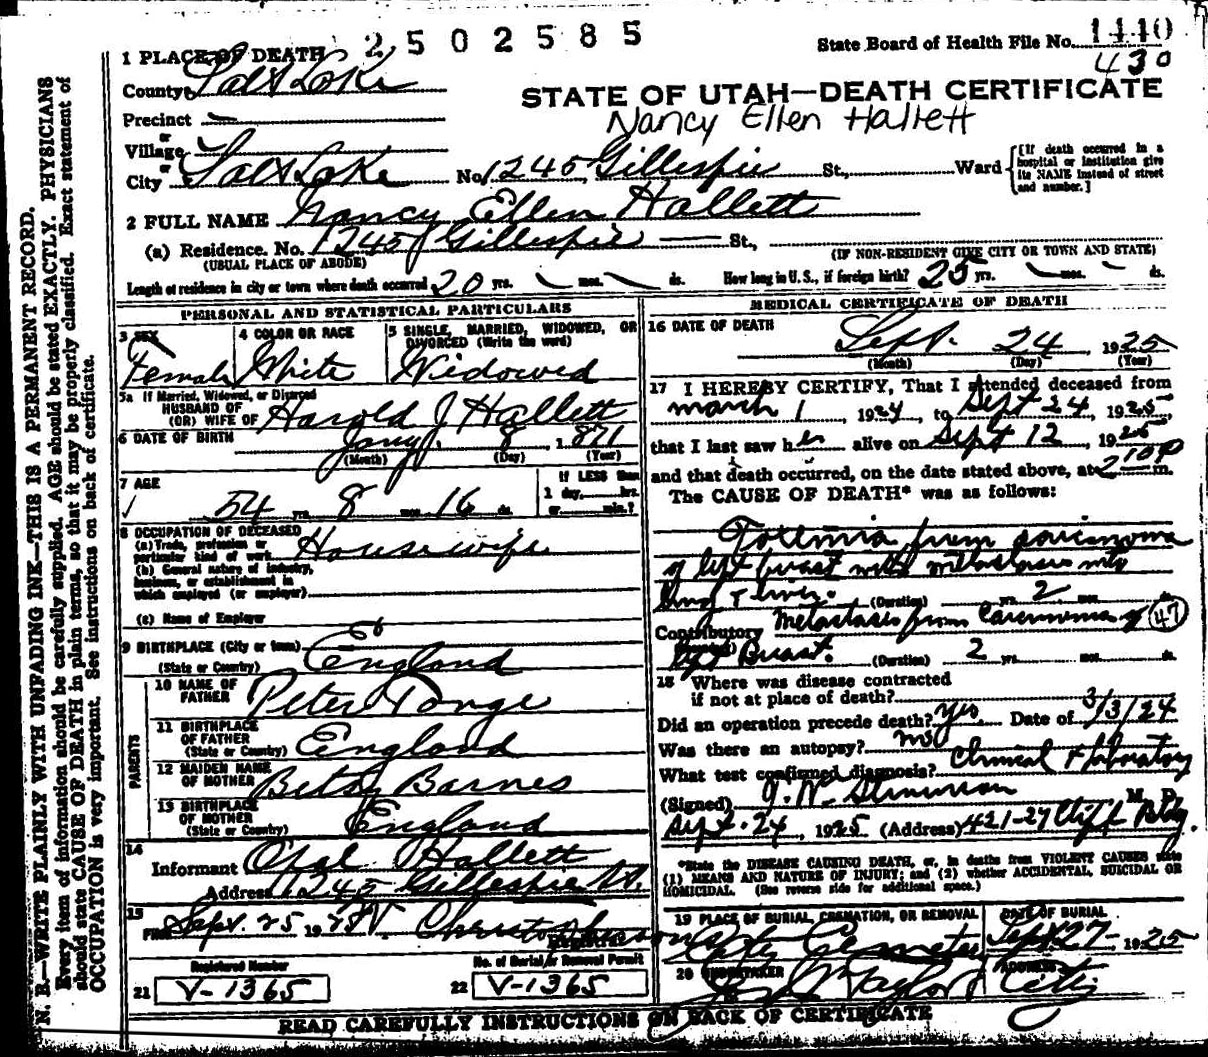 2502585
State Board of Health File No. 1440
430
1 PLACE OF DEATH
County Salt Lake
STATE OF UTAH—DEATH CERTIFICATE
Nancy Ellen Hallett
Precinct
or
Village
or
City Salt Lake No. 1245 Gillespie St., Ward
[If death occurred in a hospital or institution give its NAME instead of street and number.]
2 FULL NAME Nancy Ellen Hallett
(a) Residence. No. 1245 Gillespie St.,
(USUAL PLACE OF ABODE) (IF NON-RESIDENT GIVE CITY OR TOWN AND STATE)
Length of residence in city or town where death occurred 20 yrs. mos. ds. How long in U. S., if foreign birth? 25 yrs. mos. ds.
PERSONAL AND STATISTICAL PARTICULARS
3 SEX
Female
4 COLOR OR RACE
White
5 SINGLE, MARRIED, WIDOWED, OR DIVORCED (Write the word)
Widowed
5a If Married, Widowed, or Divorced
HUSBAND OF
(OR) WIFE OF Harold J Hallett
6 DATE OF BIRTH Jany 8, 1871
(Month) (Day) (Year)
7 AGE
54 yrs. 8 mos. 16 ds.
If LESS than
1 day, hrs.
or min.?
8 OCCUPATION OF DECEASED
(a) Trade, profession or
particular kind of work Housewife
(b) General nature of industry,
business, or establishment in
which employed (or employer)
(c) Name of Employer
9 BIRTHPLACE (City or town)
(State or Country) England
PARENTS
10 NAME OF
FATHER Peter Tonge
11 BIRTHPLACE
OF FATHER
(State or Country) England
12 MAIDEN NAME
OF MOTHER Betsy Barnes
13 BIRTHPLACE
OF MOTHER
(State or Country) England
14
Informant Opal Hallett
Address 1245 Gillespie St.
15
Sept. 25 192
Registrar
Registered Number
21 V-1365
No. of Burial or Removal Permit
22 V-1365
MEDICAL CERTIFICATE OF DEATH
16 DATE OF DEATH
Sept. 24, 1925
(Month) (Day) (Year)
17 I HEREBY CERTIFY, That I attended deceased from
March 1, 1924, to Sept 24, 1925
that I last saw her alive on Sept 12, 1925
and that death occurred, on the date stated above, at 2 10 P m.
The CAUSE OF DEATH* was as follows:
Toxemia from carcinoma
of left breast with metastases into
lung & liver.
(Duration) yrs. 2 mos.
Contributory Metastasis from Carcinoma of 47
left Breast. (Duration) 2 yrs. mos. ds.
18 Where was disease contracted
if not at place of death?
Did an operation precede death? Yes Date of 3/3/24
Was there an autopsy? no
What test confirmed diagnosis? Clinical & laboratory
(Signed) M. D.
Sept. 24, 1925 (Address) 421-27 Cliff Bldg.
*State the DISEASE CAUSING DEATH, or, in deaths from VIOLENT CAUSES state
(1) MEANS AND NATURE OF INJURY; and (2) whether ACCIDENTAL, SUICIDAL OR
HOMICIDAL. (See reverse side for additional space.)
19 PLACE OF BURIAL, CREMATION, OR REMOVAL
City Cemetery
DATE OF BURIAL
Sept 27- 1925
20 UNDERTAKER
Taylor
ADDRESS
City
READ CAREFULLY INSTRUCTIONS ON BACK OF CERTIFICATE
N. B.—WRITE PLAINLY WITH UNFADING INK—THIS IS A PERMANENT RECORD.
Every item of information should be carefully supplied. AGE should be stated EXACTLY. PHYSICIANS
should state CAUSE OF DEATH in plain terms, so that it may be properly classified. Exact statement of
OCCUPATION is very important. See instructions on back of certificate.